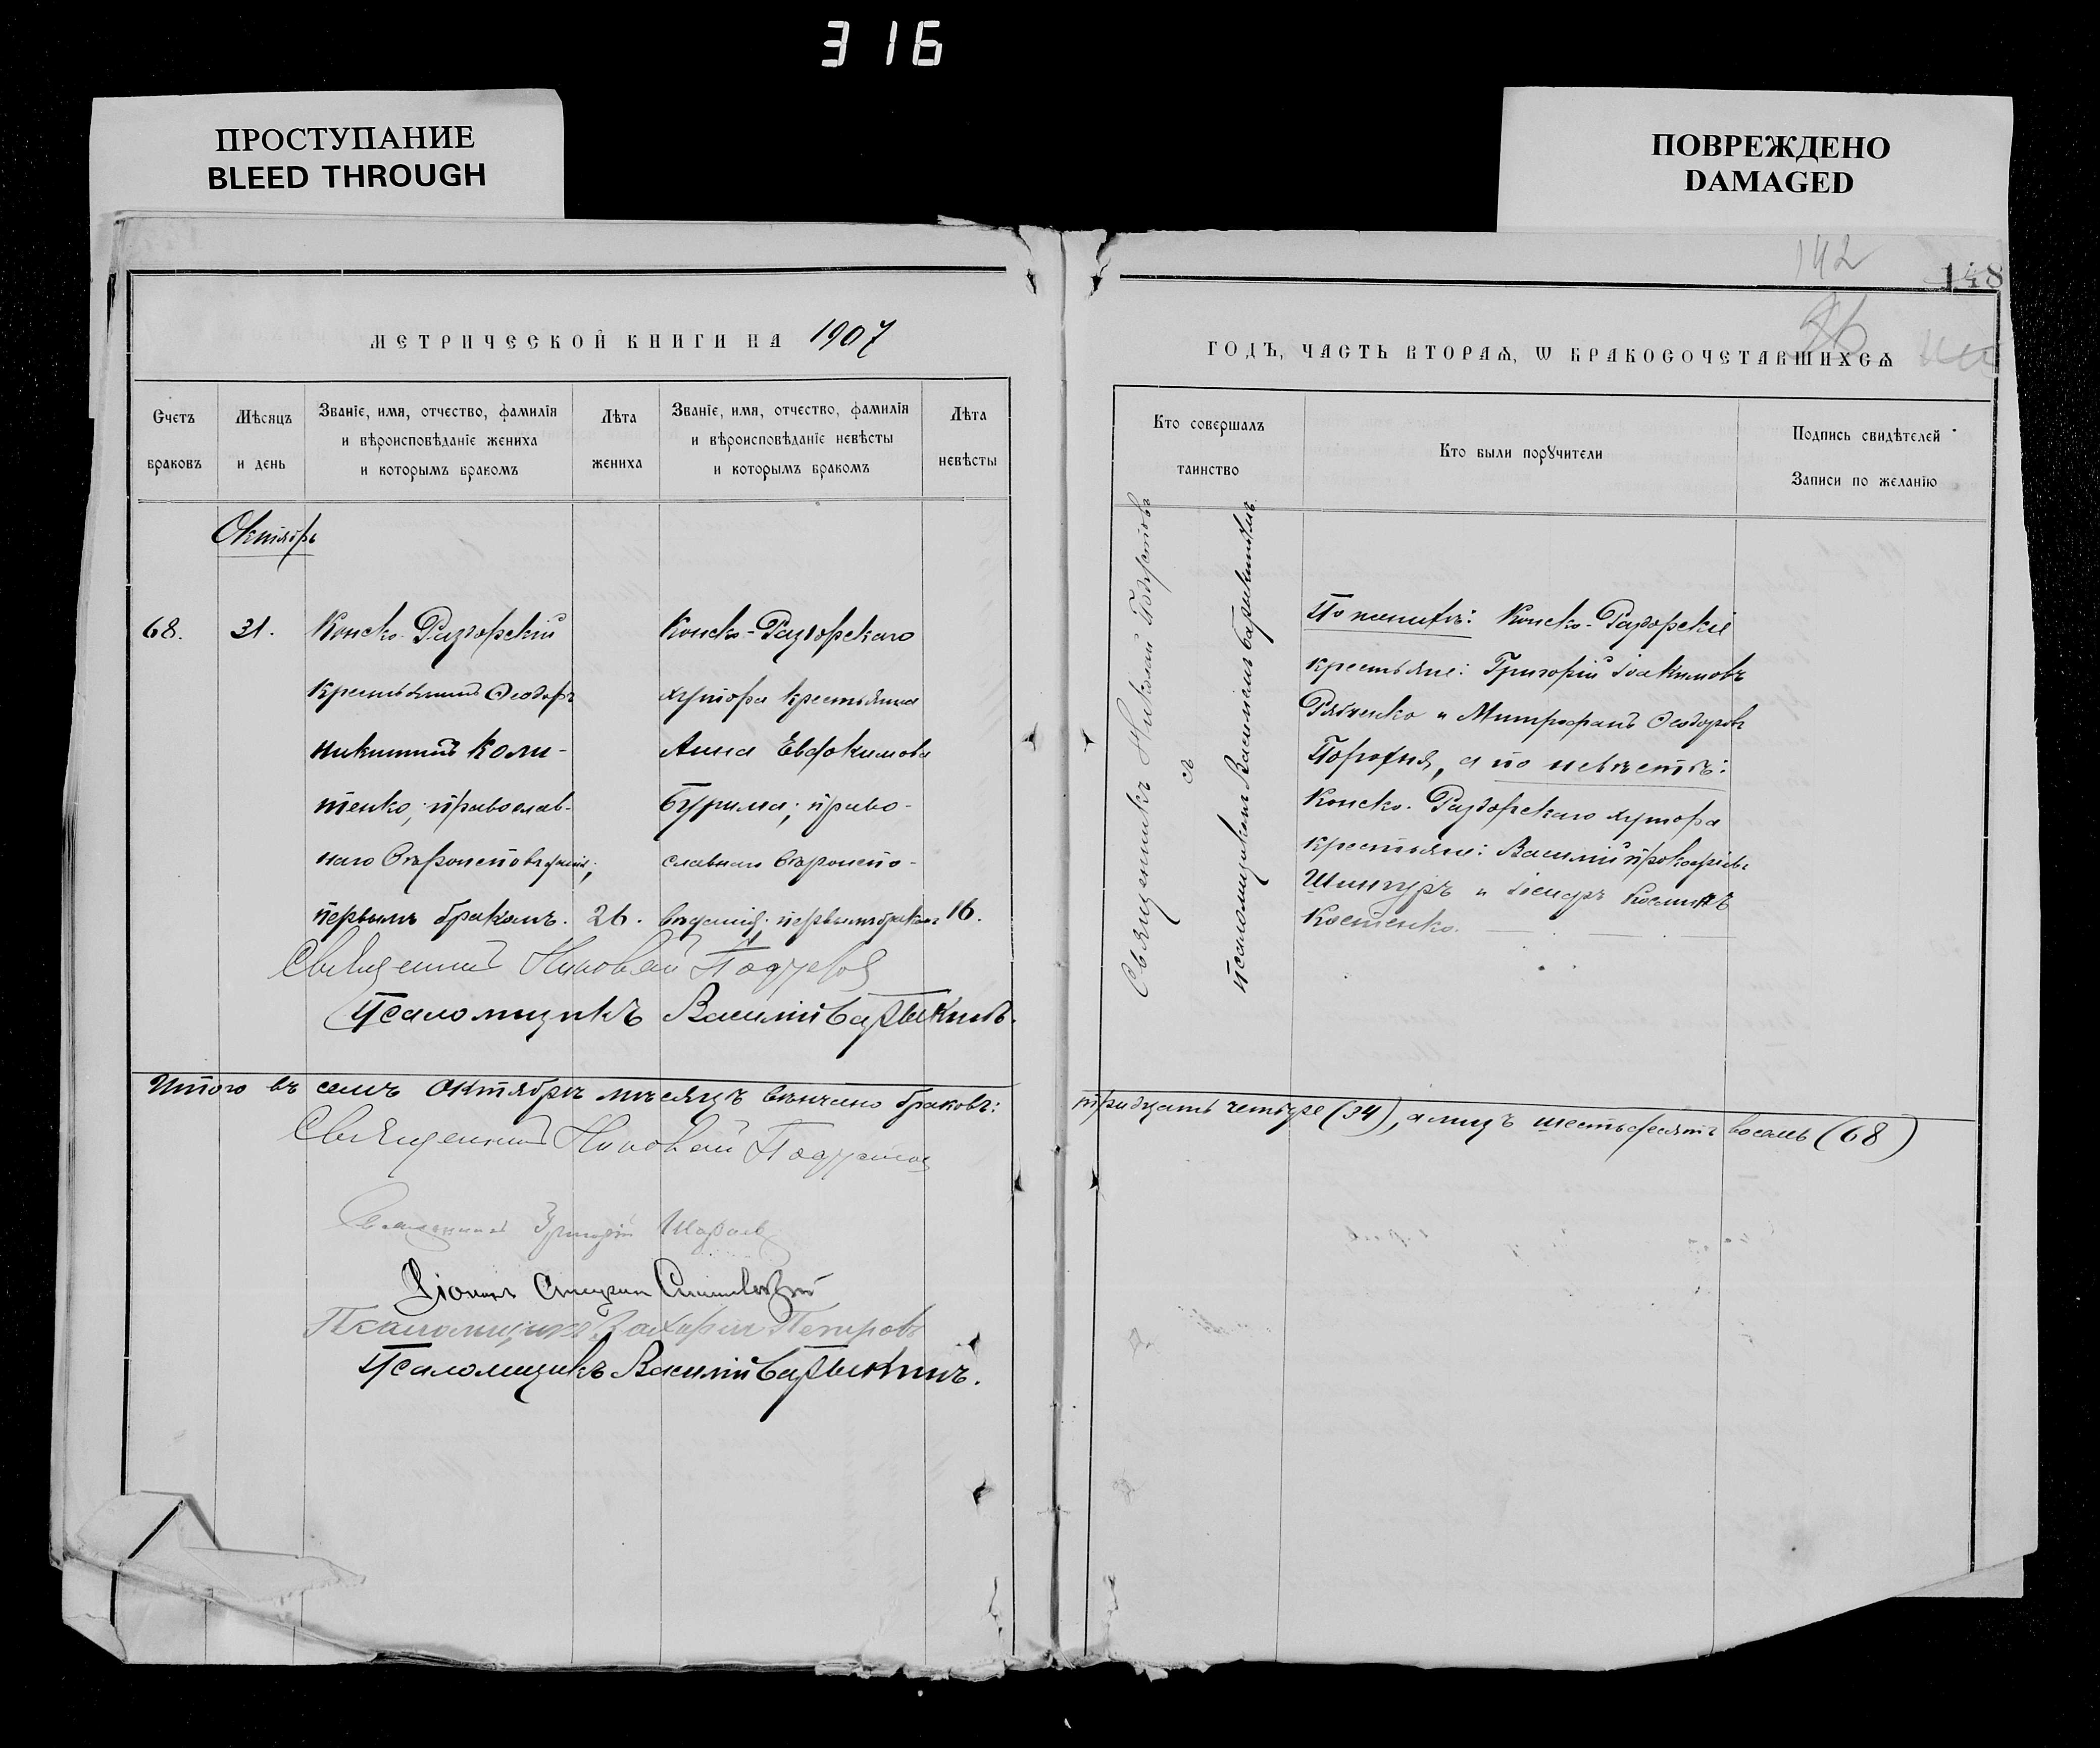 316
ПРОСТУПАНИЕ
BLEED THROUGH
ПОВРЕЖДЕНО
DAMAGED
142
148
МЕТРИЧЕСКОЙ КНИГИ НА 1907
ГОДЪ, ЧАСТЬ ВТОРАѦ, Ѡ БРАКОСОЧЕТАВШИХСѦ
Счетъ браковъ
Мѣсяцъ и день
Званіе, имя, отчество, фамилія и вѣроисповѣданіе жениха и которымъ бракомъ
Лѣта жениха
Званіе, имя, отчество, фамилія и вѣроисповѣданіе невѣсты и которымъ бракомъ
Лѣта невѣсты
Кто совершалъ таинство
Кто были порꙋчители
Подпись свидѣтелей Записи по желанію
Октябрь
68.
31.
Конско-Раздорскій
крестьянинъ Ѳеодоръ
Никитинъ Коли-
тенко, православ-
наго вѣроисповѣданія,
первымъ бракомъ.
26.
Конско-Раздорскаго
хутора крестьянка
Анна Евдокимова
Бурима; право-
славнаго вѣроиспо-
вѣданія, первымъ бракомъ
16.
Священникъ Николай
съ
псаломщикомъ Василіемъ Барыкинымъ
По женихѣ: Конско-Раздорскіе
крестьяне: Григорій Іоакимовъ
Рябченко и Митрофанъ Ѳеодоровъ
Порохня, а по невѣстѣ:
Конско-Раздорскаго хутора
крестьяне: Василій Прокофіевъ
и Косминъ
Костенко.
Священникъ Николай
Псаломщикъ Василій Барыкинъ.
Итого въ семъ Октябрѣ мѣсяцѣ вѣнчано браковъ:
тридцать четыре (34), а лицъ шестьдесятъ восемь (68)
Священникъ Николай
Священникъ Григорій
Діаконъ
Псаломщикъ Захарія Петровъ
Псаломщикъ Василій Барыкинъ.